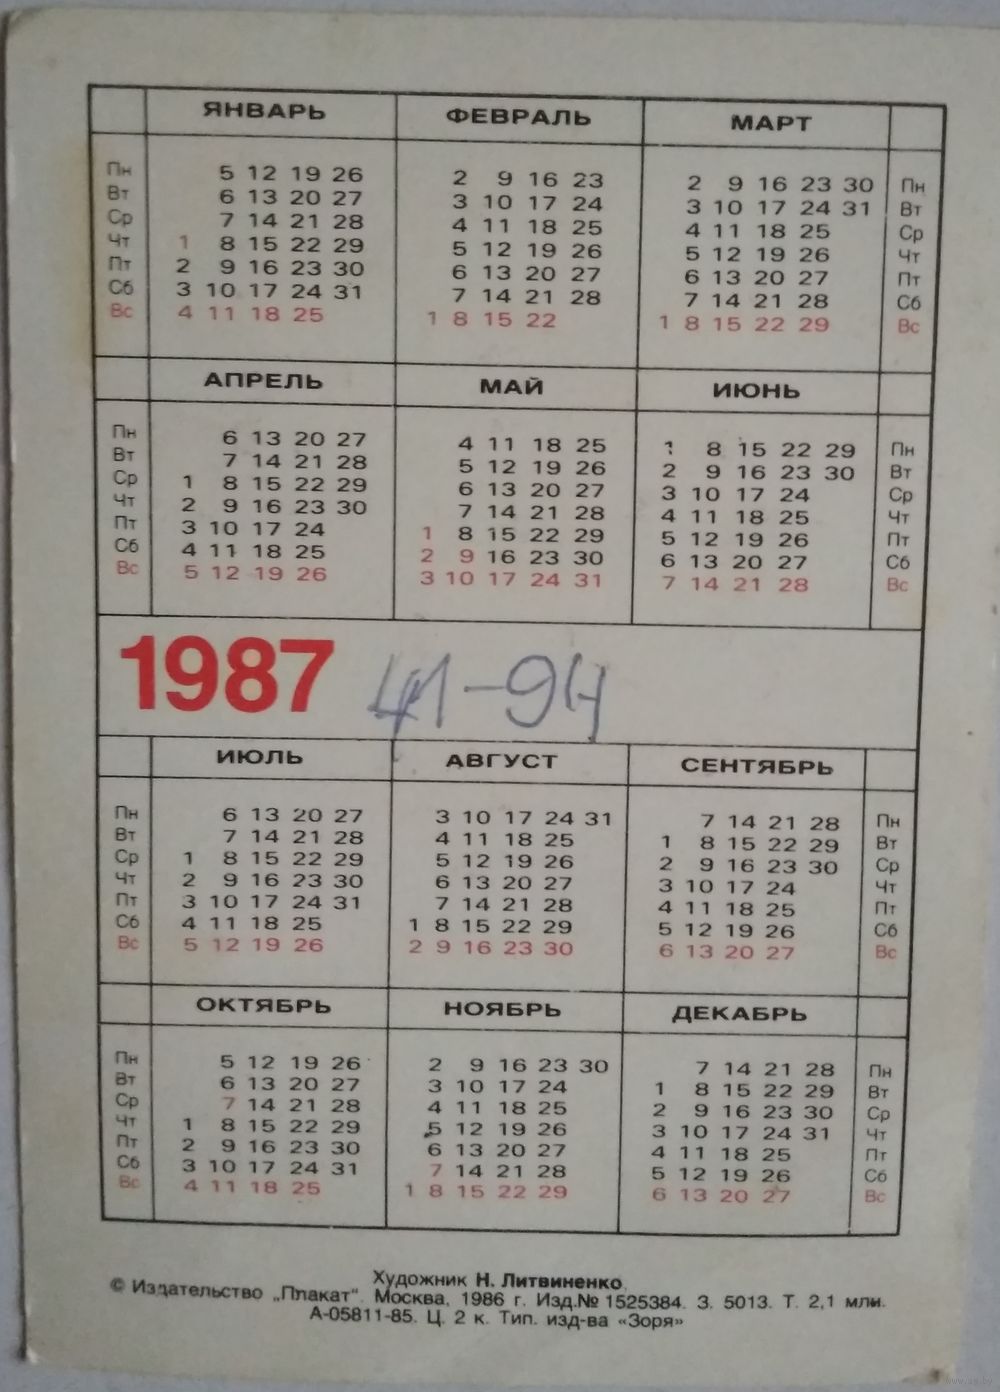 ЯНВАРЬ ФЕВРАЛЬ МАРТ
Пн 5 12 19 26 2 9 16 23 2 9 16 23 30 Пн
Вт 6 13 20 27 3 10 17 24 3 10 17 24 31 Вт
Ср 7 14 21 28 4 11 18 25 4 11 18 25 Ср
Чт 1 8 15 22 29 5 12 19 26 5 12 19 26 Чт
Пт 2 9 16 23 30 6 13 20 27 6 13 20 27 Пт
Сб 3 10 17 24 31 7 14 21 28 7 14 21 28 Сб
Вс 4 11 18 25 1 8 15 22 1 8 15 22 29 Вс
АПРЕЛЬ МАЙ ИЮНЬ
Пн 6 13 20 27 4 11 18 25 1 8 15 22 29 Пн
Вт 7 14 21 28 5 12 19 26 2 9 16 23 30 Вт
Ср 1 8 15 22 29 6 13 20 27 3 10 17 24 Ср
Чт 2 9 16 23 30 7 14 21 28 4 11 18 25 Чт
Пт 3 10 17 24 1 8 15 22 29 5 12 19 26 Пт
Сб 4 11 18 25 2 9 16 23 30 6 13 20 27 Сб
Вс 5 12 19 26 3 10 17 24 31 7 14 21 28 Вс
1987 41-94
ИЮЛЬ АВГУСТ СЕНТЯБРЬ
Пн 6 13 20 27 3 10 17 24 31 7 14 21 28 Пн
Вт 7 14 21 28 4 11 18 25 1 8 15 22 29 Вт
Ср 1 8 15 22 29 5 12 19 26 2 9 16 23 30 Ср
Чт 2 9 16 23 30 6 13 20 27 3 10 17 24 Чт
Пт 3 10 17 24 31 7 14 21 28 4 11 18 25 Пт
Сб 4 11 18 25 1 8 15 22 29 5 12 19 26 Сб
Вс 5 12 19 26 2 9 16 23 30 6 13 20 27 Вс
ОКТЯБРЬ НОЯБРЬ ДЕКАБРЬ
Пн 5 12 19 26 2 9 16 23 30 7 14 21 28 Пн
Вт 6 13 20 27 3 10 17 24 1 8 15 22 29 Вт
Ср 7 14 21 28 4 11 18 25 2 9 16 23 30 Ср
Чт 1 8 15 22 29 5 12 19 26 3 10 17 24 31 Чт
Пт 2 9 16 23 30 6 13 20 27 4 11 18 25 Пт
Сб 3 10 17 24 31 7 14 21 28 5 12 19 26 Сб
Вс 4 11 18 25 1 8 15 22 29 6 13 20 27 Вс
Художник Н. Литвиненко.
© Издательство „Плакат“. Москва, 1986 г. Изд.№ 1525384. З. 5013. Т. 2,1 млн.
А-05811-85. Ц. 2 к. Тип. изд-ва «Зоря»